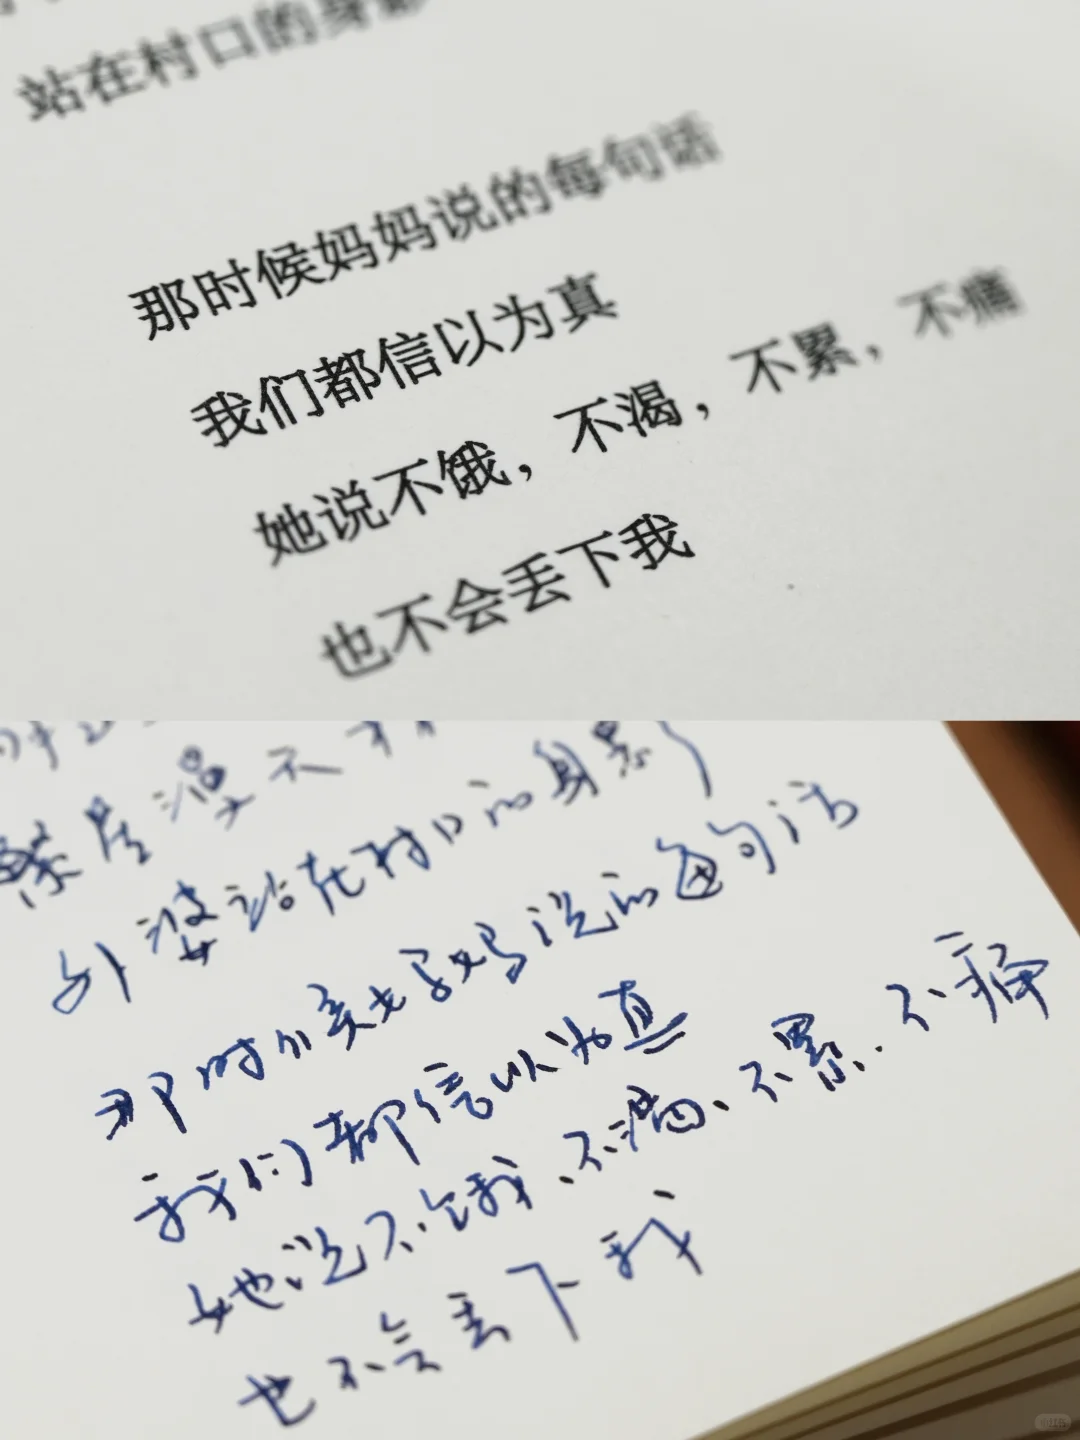 站在村口的身影
那时候妈妈说的每句话
我们都信以为真
她说不饿，不渴，不累，不痛
也不会丢下我
繁星漫天
外婆站在村口的身影
那时候妈妈说的每句话
我们都信以为真
她说不饿、不渴、不累、不痛
也不会丢下我